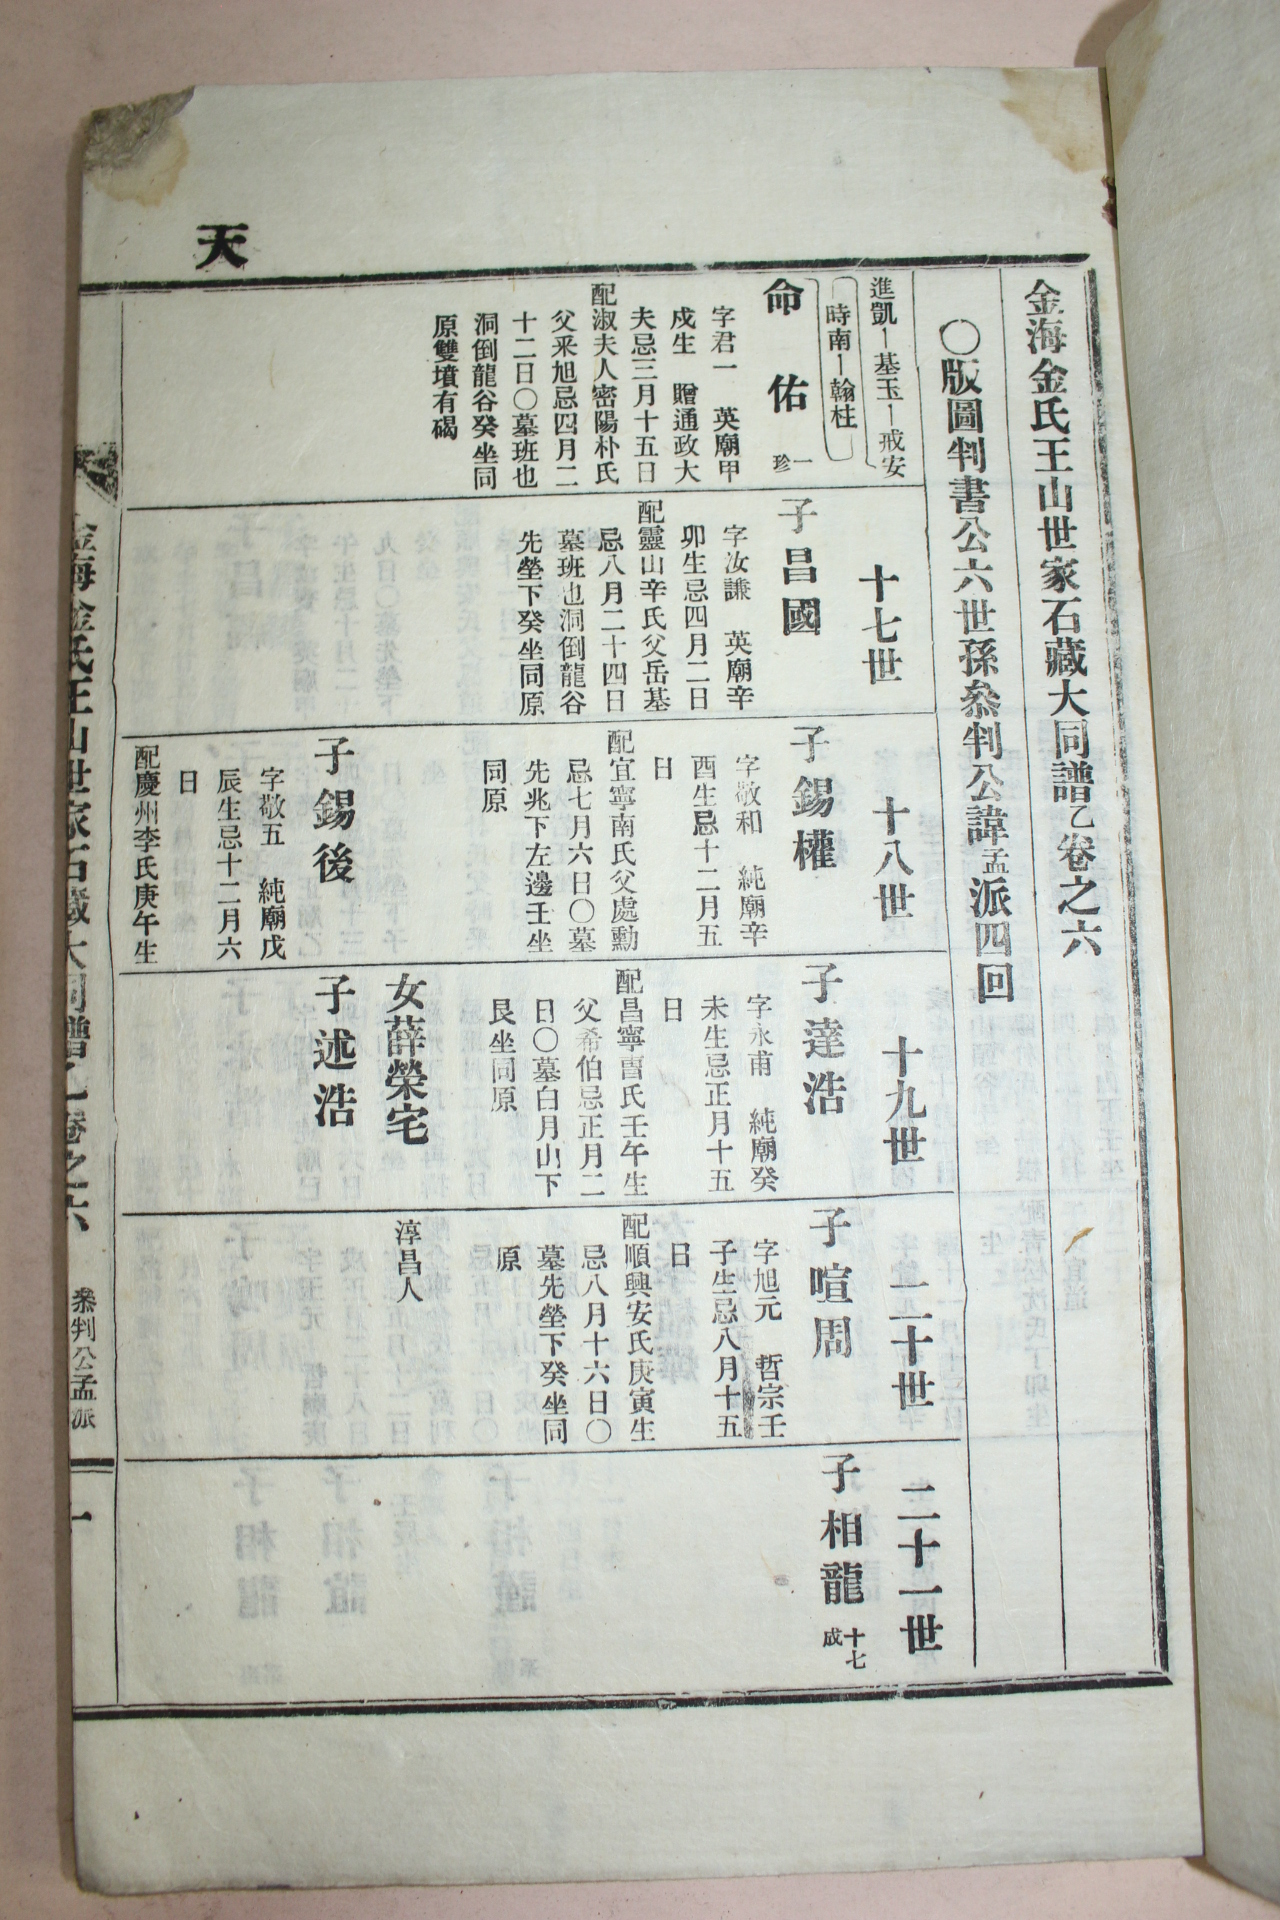 天
金海金氏王山世家石藏大同譜乙卷之六
〇版圖判書公六世孫叅判公諱孟派四回
進凱─基玉─戒安
時南─翰柱
命佑
一珍
字君一 英廟甲
戌生 贈通政大
夫忌三月十五日
配淑夫人密陽朴氏
父釆旭忌四月二
十二日〇墓班也
洞倒龍谷癸坐同
原雙墳有碣
十七世
子昌國
字汝謙 英廟辛
卯生忌四月二日
配靈山辛氏父岳基
忌八月二十四日
墓班也洞倒龍谷
先塋下癸坐同原
十八世
子錫權
字敬和 純廟辛
酉生忌十二月五
日
配宜寧南氏父處勳
忌七月六日〇墓
先兆下左邊壬坐
同原
子錫後
字敬五 純廟戊
辰生忌十二月六
日
配慶州李氏庚午生
十九世
子達浩
字永甫 純廟癸
未生忌正月十五
日
配昌寧曺氏壬午生
父希伯忌正月二
日〇墓白月山下
艮坐同原
女薛榮宅
子述浩
二十世
子喧周
字旭元 哲宗壬
子生忌八月十五
日
配順興安氏庚寅生
忌八月十六日〇
墓先塋下癸坐同
原
淳昌人
二十一世
子相龍
十七
成
金海金氏王山世家石藏大同譜乙卷之六
叅判公孟派
一